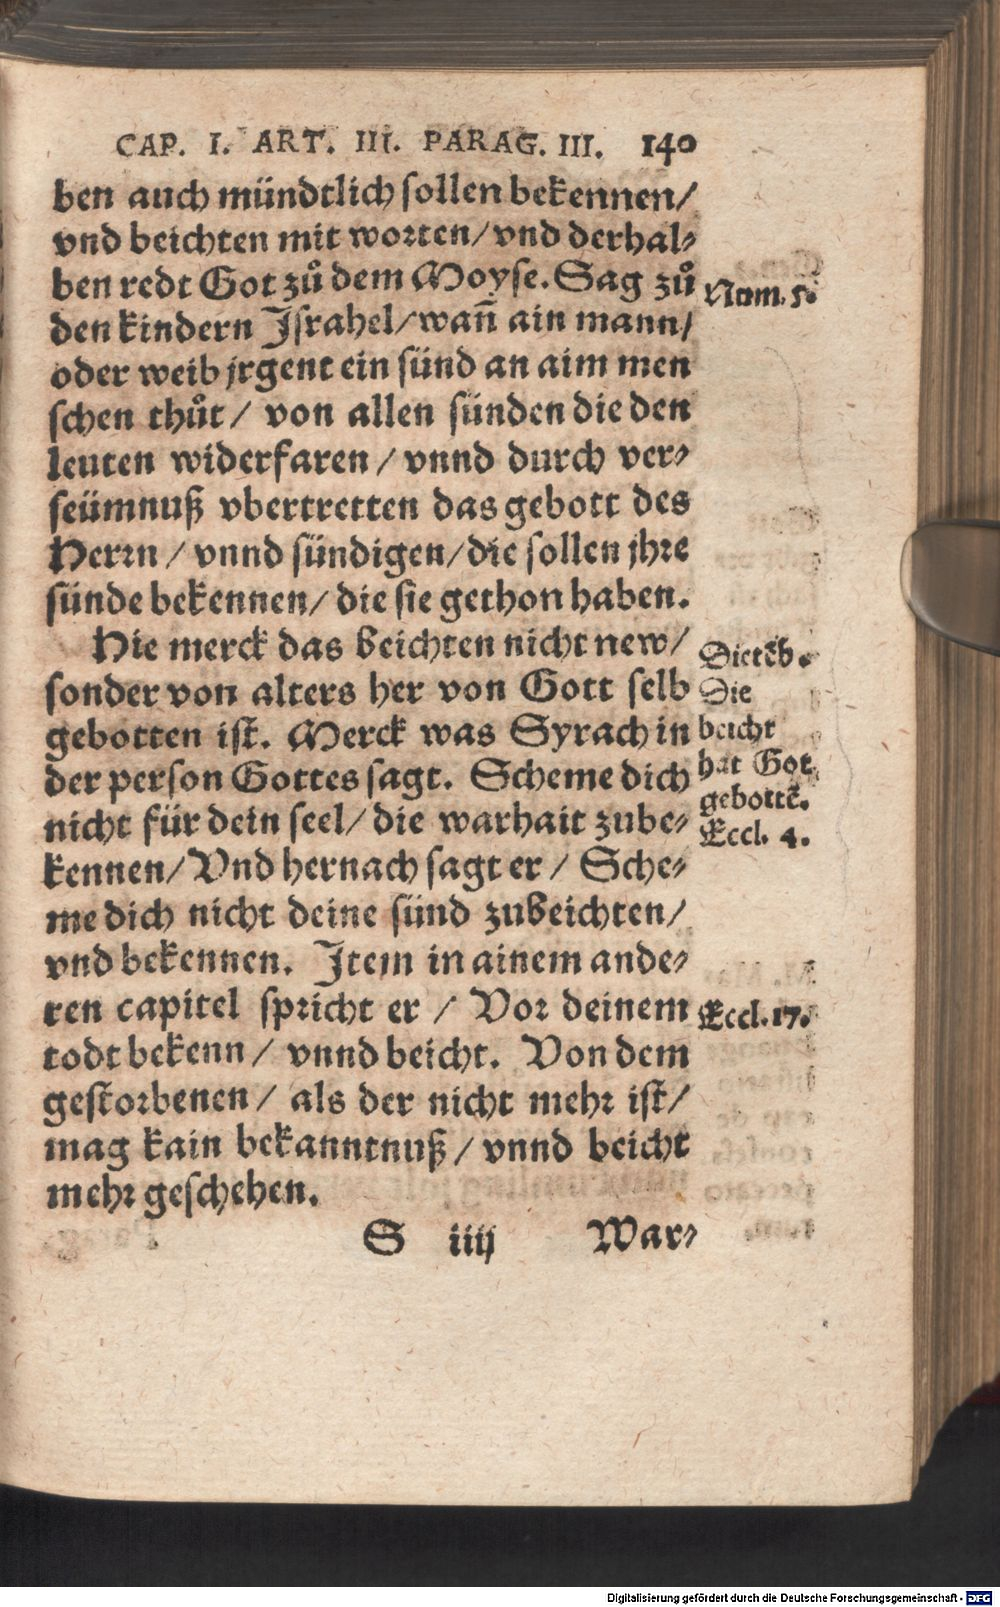 CAP. I. ART. III. PARAG. III. 140
ben auch mündtlich sollen bekennen/
vnd beichten mit worten/ vnd derhal⸗
ben redt Got zů dem Moyse. Sag zů
den kindern Jsrahel/ wañ ain mann/
oder weib jrgent ein sünd an aim men
schen thůt/ von allen sünden die den
leuten widerfaren/ vnnd durch ver⸗
seümnuß vbertretten das gebott des
Herrn/ vnnd sündigen/ die sollen jhre
sünde bekennen/ die sie gethon haben.
Num. 5.
Hie merck das beichten nicht new/
sonder von alters her von Gott selb
gebotten ist. Merck was Syrach in
der person Gottes sagt. Scheme dich
nicht für dein seel/ die warhait zube⸗
kennen/ Vnd hernach sagt er/ Sche⸗
me dich nicht deine sünd zubeichten/
vnd bekennen. Jtem in ainem ande⸗
ren capitel spricht er/ Vor deinem
todt bekenn/ vnnd beicht. Von dem
gestorbenen/ als der nicht mehr ist/
mag kain bekanntnuß/ vnnd beicht
mehr geschehen.
Dietēb.
Die
beicht
hat Got
gebottē.
Eccl. 4.
Eccl. 17.
S iiij War⸗
Digitalisierung gefördert durch die Deutsche Forschungsgemeinschaft - DFG